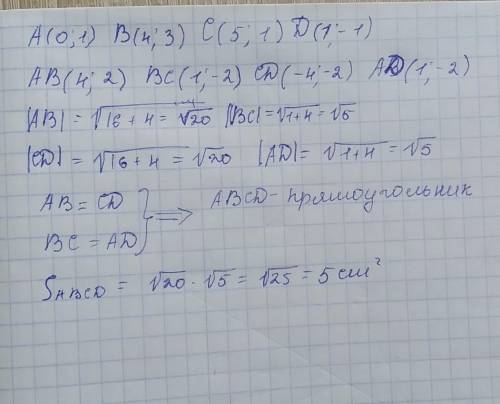 A(0;1) B(4;3) C(5;1) D(1;-1)
AB(4;2) BC(1;-2) CD(-4;-2) AD(1;-2)
|AB| = √16+4 = √20 |BC| = √1+4 = √5
|CD| = √16+4 = √20 |AD| = √1+4 = √5
AB = CD
BC = AD } ⇒ ABCD - прямоугольник
S ABCD = √20 · √5 = √25 = 5 cm²